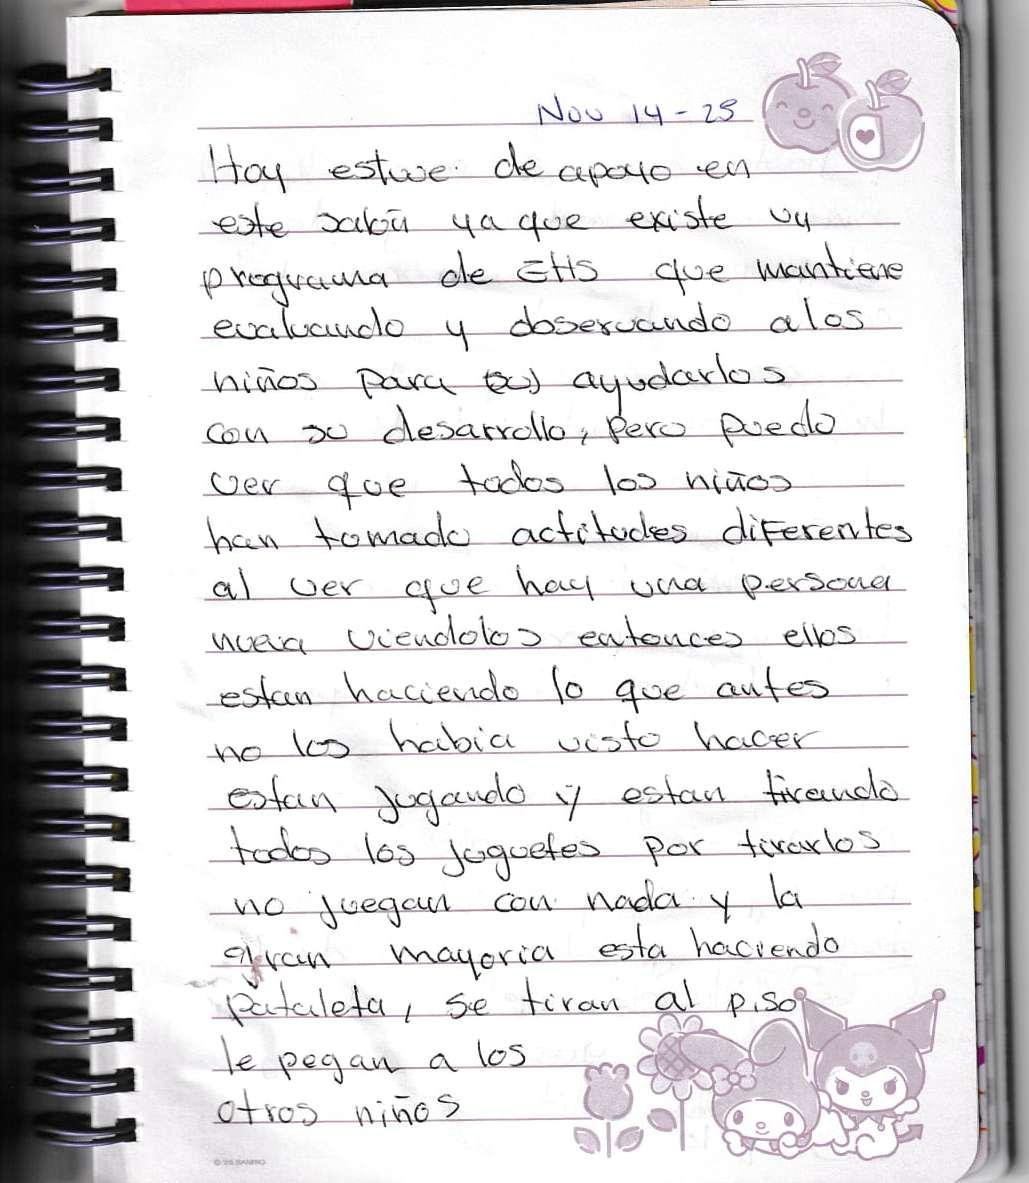 Nov 14-25
Hoy estuve de apoyo en
este salón ya que existe un
programa de EHS que mantiene
evaluando y observando a los
niños para ayudarlos
con su desarrollo, pero puedo
ver que todos los niños
han tomado actitudes diferentes
al ver que hay una persona
nueva viendolos entonces ellos
estan haciendo lo que antes
no los habia visto hacer
estan jugando y estan tirando
todos los juguetes por tirarlos
no juegan con nada y la
gran mayoria esta haciendo
pataleta, se tiran al piso
le pegan a los
otros niños
© '25 SANRIO